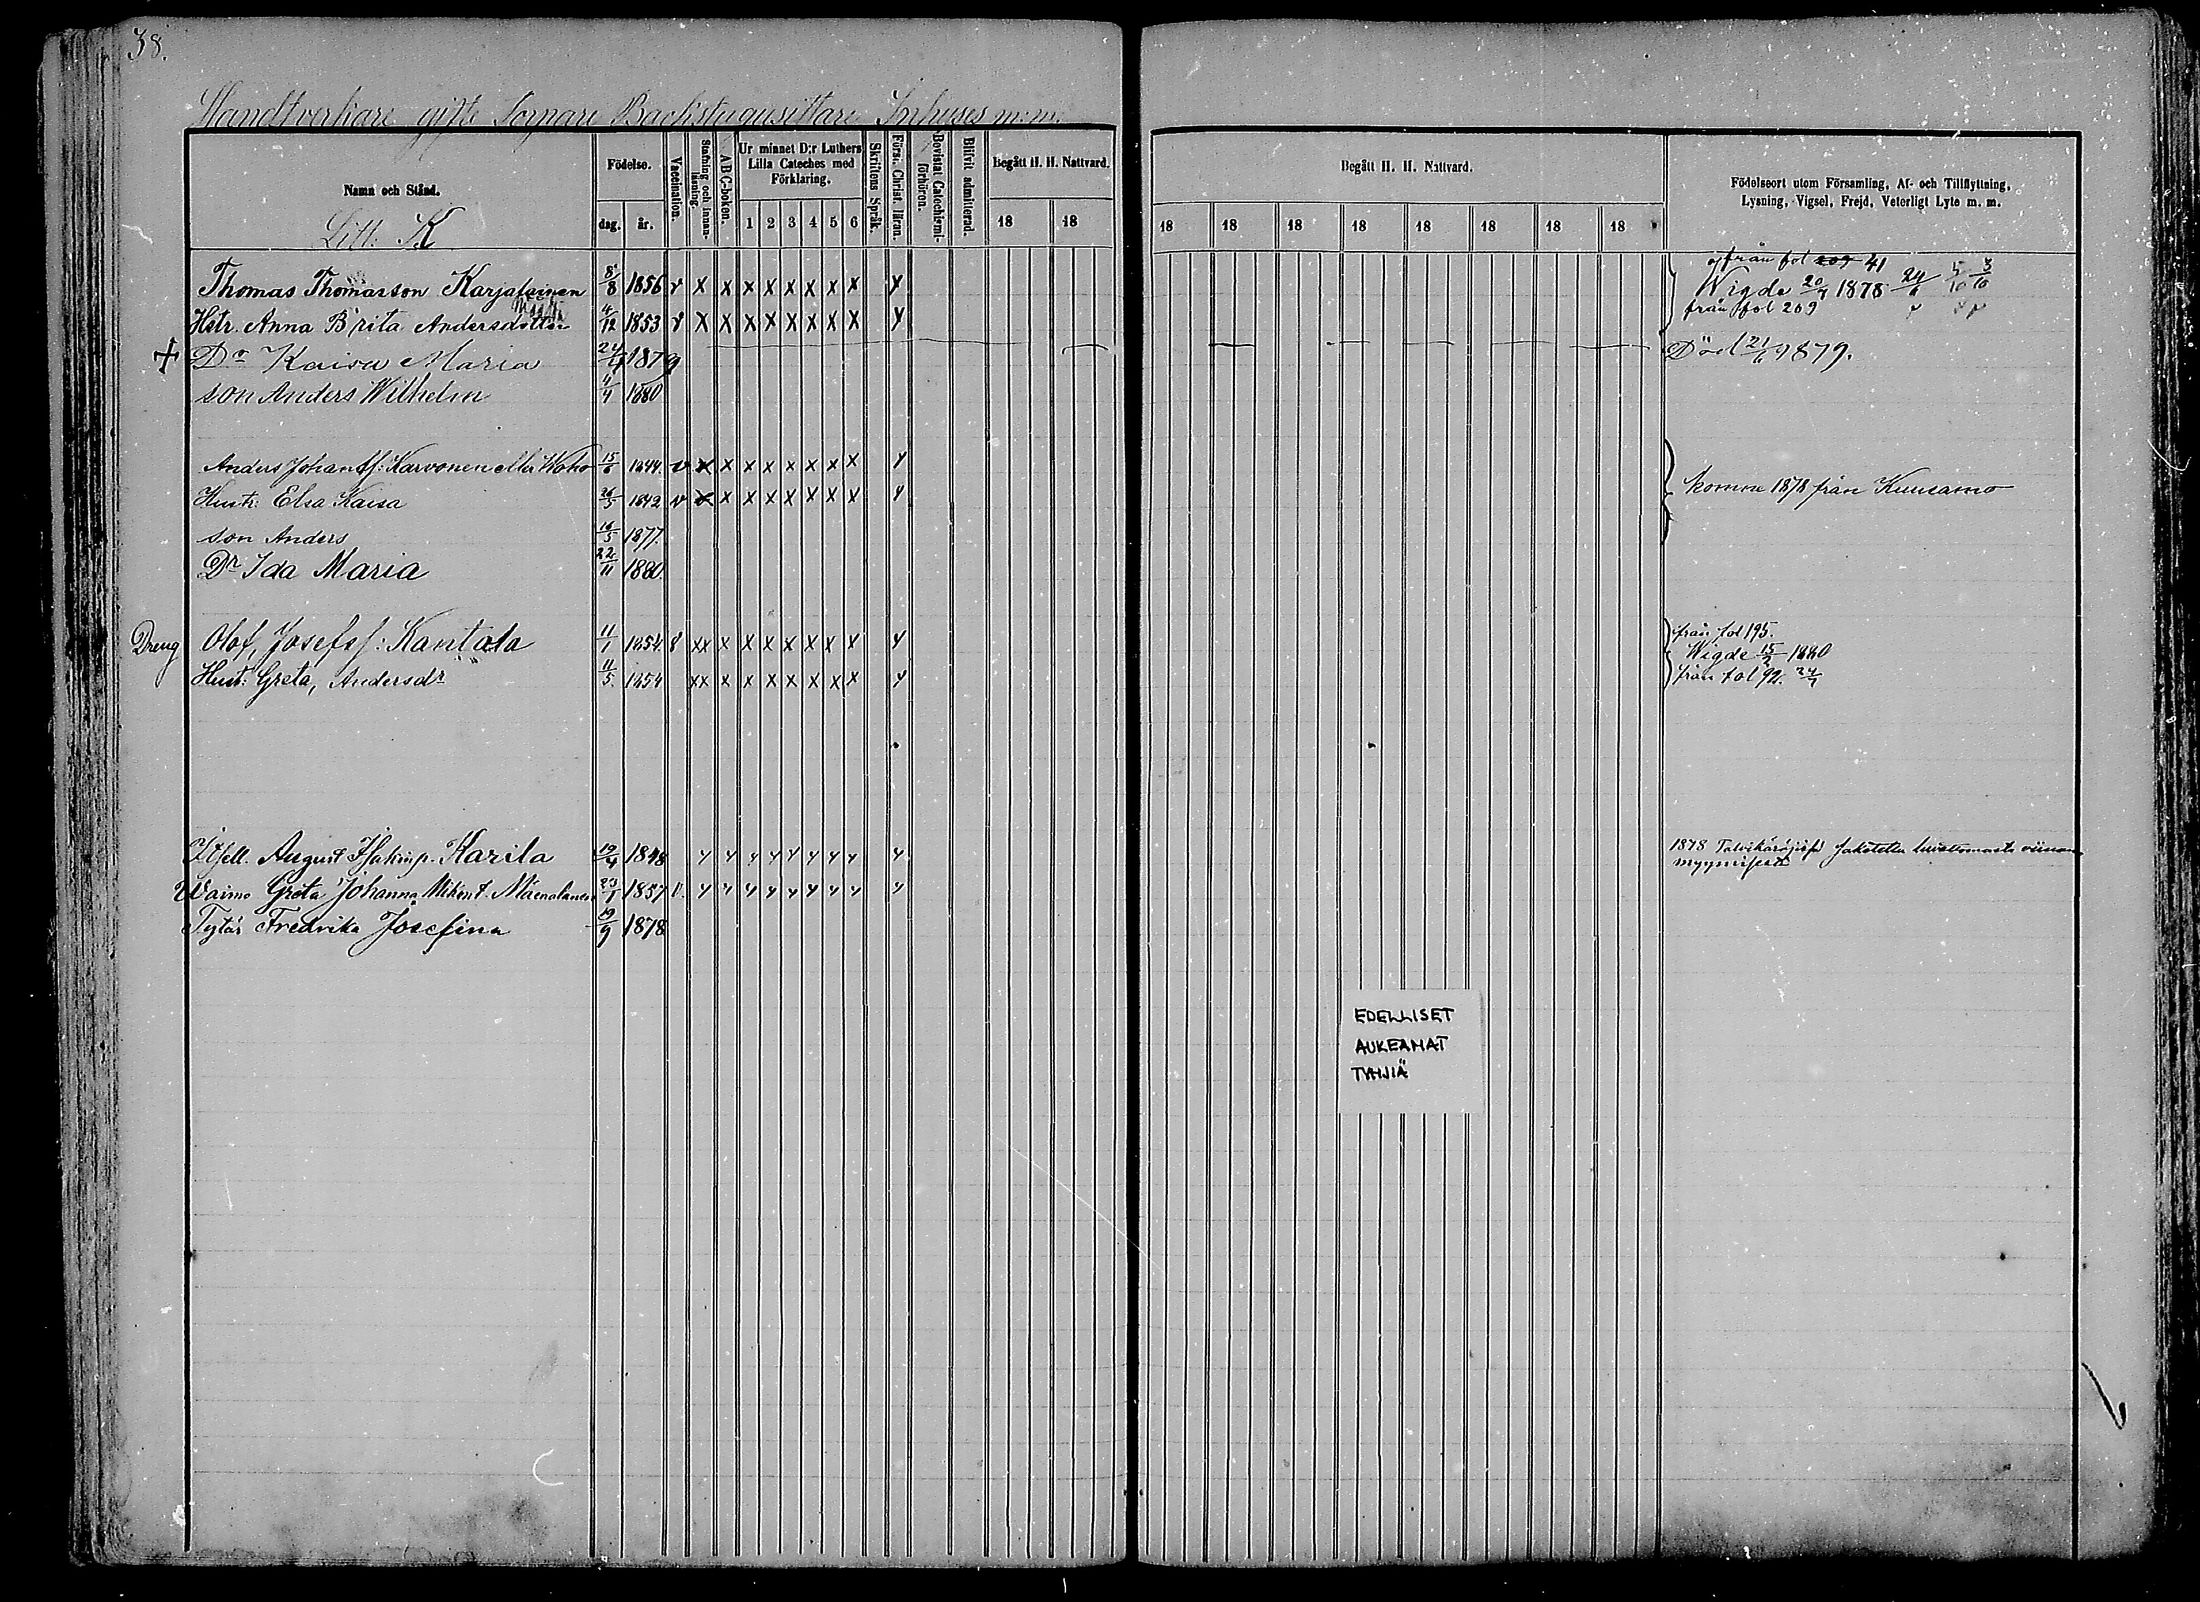 38.
Handtverkare gifte Sognare Backstugusittare Inhuses m:m:
Namn och Stånd.
Litt. K
Födelse.
dag. år.
Vaccination.
Stafning och innanläsning.
ABC-boken.
Ur minnet D:r Luthers Lilla Cateches med Förklaring.
1 2 3 4 5 6
Skriftens Språk.
Förs. Christ. läran.
Bevistat Catechismi-förhören.
Blifvit admitterad.
Begått H. H. Nattvard.
18 18
Begått H. H. Nattvard.
18 18 18 18 18 18 18 18
Födelseort utom Församling, Af- och Tillflyttning,
Lysning, Vigsel, Frejd, Veterligt Lyte m. m.
Thomas Thomasson Karjalainen 8/8 1856 v X X X X X X X X y från fol 209 41
Wigde 20/4 1878
Hstr. Anna Brita Andersdotter 4/12 1853 v X X X X X X X X y från fol 209
+ Dr Kaisa Maria 24/4 1879 Död 21/6 1879.
son Anders Wilhelm 4/4 1880
Anders Johansf: Karvonen eller Waho 15/6 1844. v x x x x x x x x y
Hustr: Elsa Kaisa 26/5 1842 v x x x x x x x x y komne 1878 från Kuusamo
son Anders 16/5 1877.
Dr Ida Maria 22/11 1880.
Dreng Olof, Josefsf: Kantola 11/1 1854. v xx x x x x x x x y från fol 195.
Wigde 15/2 1880
Hust: Greta, Andersdr 11/5. 1854 xx x x x x x x x y från fol 92.
Itsell. August Isakinp. Karila 19/4 1848 y y y y y y y y y 1878 Talvikäräjissä sakotettu luvattomasta viinan
myymisestä
Waimo Greta Johanna Mikont. Mäenalanen 23/1 1857 v. y y y y y y y y y
Tytär Fredrika Josefina 19/9 1878
EDELLISET
AUKEAMAT
TYHJIÄ